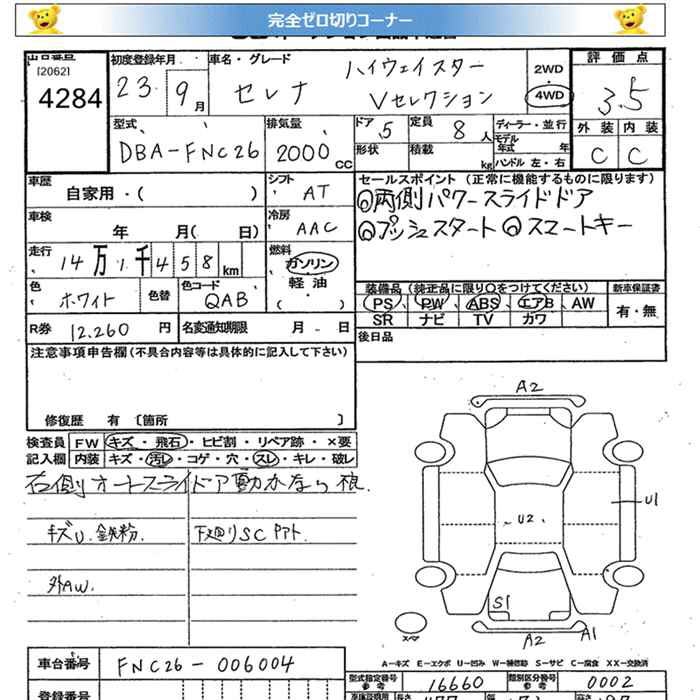 完全ゼロ切りコーナー
出品番号
[2062]
4284
初度登録年月
23. 9月
車名・グレード
セレナ ハイウェイスター
Vセレクション
2WD
4WD
評価点
3.5
外装 内装
C C
型式
DBA-FNC26
排気量
2000 CC
ドア 5
形状
定員 8人
積載 kg
ディーラー・並行
モデル年式 年
ハンドル 左・右
車歴
自家用・( )
シフト
AT
車検
年 月( 日)
冷房
AAC
走行
14万1千458km
燃料
ガソリン
軽油
( ・ )
色
ホワイト
色替
色コード
QAB
R券 12,260円
名変通知期限 月 日
セールスポイント (正常に機能するものに限ります)
◎両側パワースライドドア
◎プッシュスタート ◎スマートキー
装備品(純正品に限り○をつけてください)
PS PW ABS エアB AW
SR ナビ TV カワ
新車保証書
有・無
後日品
注意事項申告欄(不具合内容等は具体的に記入して下さい)
修復歴 有 〔箇所 〕
検査員記入欄
FW キズ・飛石・ヒビ割・リペア跡・×要
内装 キズ・汚レ・コゲ・穴・スレ・キレ・破レ
右側オートスライドア動かない
キズU. 鉄粉.
下廻りSC
外AW.
A2
U1
U2
S1
A2
A1
スペア
A-キズ E-エクボ U-凹み W-補修跡 S-サビ C-腐食 XX-交換済
車台番号
FNC26-006004
型式指定番号
16660
類別区分番号
0002
登録番号